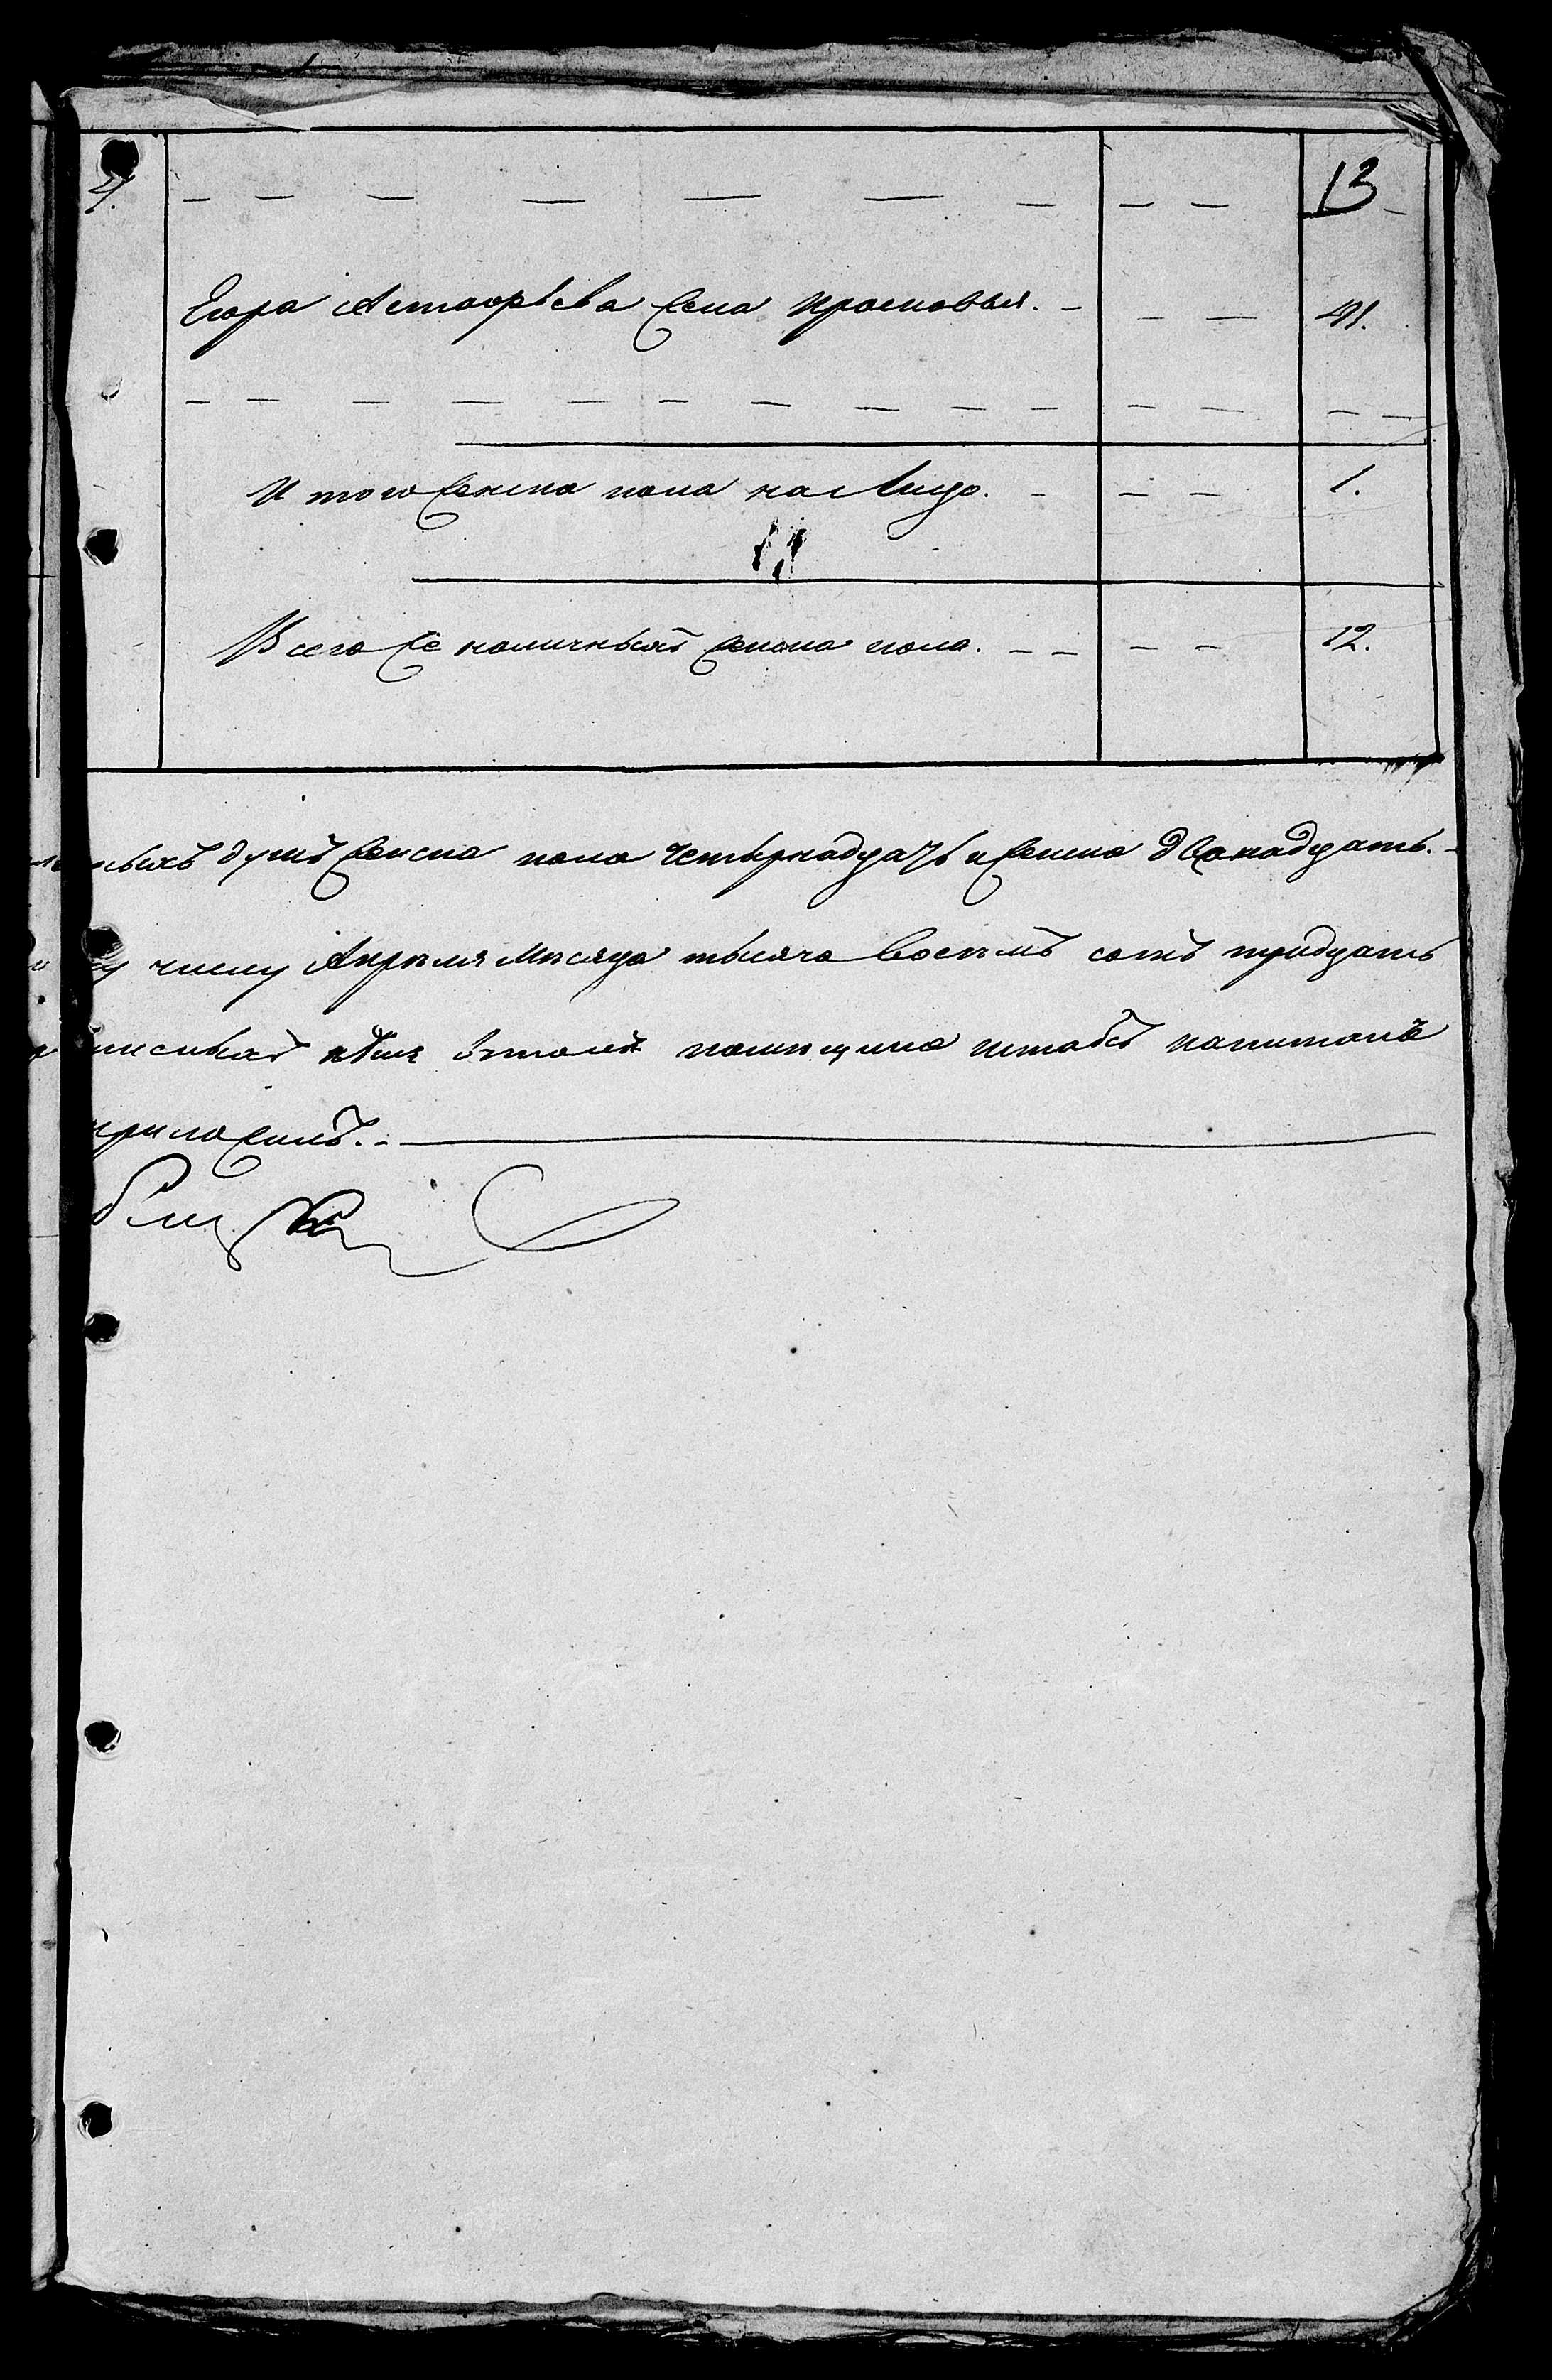 4. — — — — — — — — — 13 —
Егора Астафьева жена Прасковья. — — — 41.
— — — — — — — — — — — — — —
И того женска пола на Лицо. — — — 1.
Всего же наличныхъ женска пола. — — — — 12.
ныхъ душъ женска пола четырнадцать и женска двенадцать. —
числу Апреля Месяца тысяча восемъ сотъ тридцать
помещика штабсъ капитана
приложилъ. —